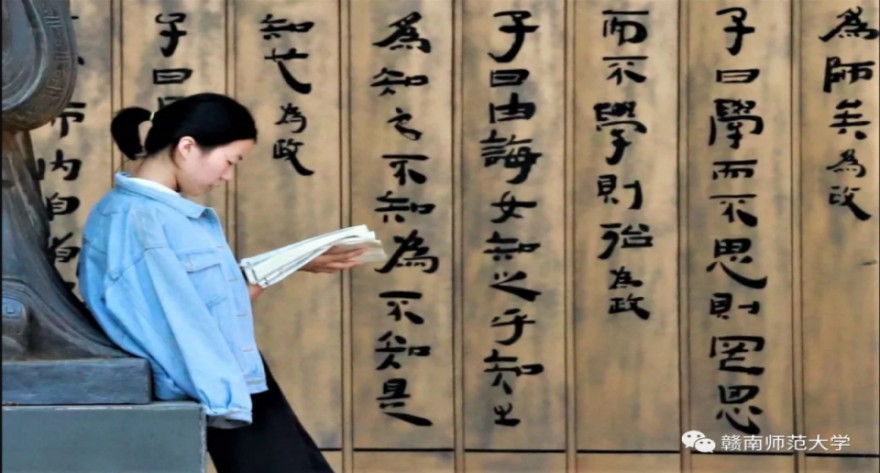 為師矣為政
子曰學而不思則罔思
而不學則殆為政
子曰由誨女知之乎知之
為知之不知為不知是
知也為政
子曰
內自省
赣南师范大学